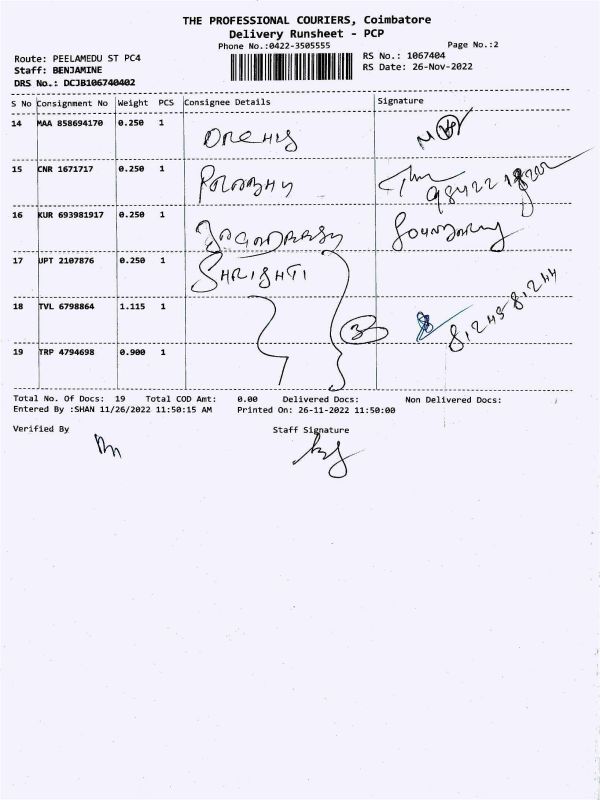 THE PROFESSIONAL COURIERS, Coimbatore
Delivery Runsheet - PCP
Phone No.:0422-3505555 Page No.:2
Route: PEELAMEDU ST PC4 RS No.: 1067404
Staff: BENJAMINE RS Date: 26-Nov-2022
DRS No.: DCJB106740402
S No Consignment No Weight PCS Consignee Details Signature
14 MAA 858694170 0.250 1
15 CNR 1671717 0.250 1
16 KUR 693981917 0.250 1
17 UPT 2107876 0.250 1 SHRISHTI
18 TVL 6798864 1.115 1
19 TRP 4794698 0.900 1
Total No. Of Docs: 19 Total COD Amt: 0.00 Delivered Docs: Non Delivered Docs:
Entered By :SHAN 11/26/2022 11:50:15 AM Printed On: 26-11-2022 11:50:00
Verified By Staff Signature